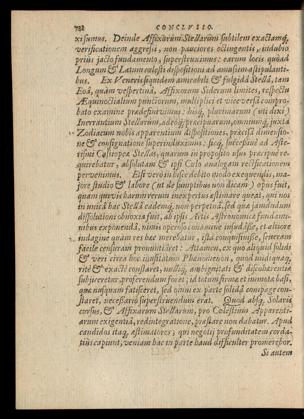 732 CONCLUSIO.
xisumus. Deinde Affixarum Stellarum subtilem exactamq́;
verificationem aggressi, non pauciores octingentis, indubio
priùs jacto fundamento, superstruximus: earum locis quòad
Longum & Latum cœlesti dispositioni ad amussim astipulanti-
bus. Ex Veneris siquidem amicabili & fulgidâ Stellâ, tam
Eoâ, quàm vespertinâ, Affixarum Siderum limites, respectu
Æquinoctialium punctorum, multiplici et vice versâ compro-
bato examine prædefinivimus: hisq́; plurimarum (uti dixi)
Inerrantium Stellarum, adeoq́; præcipuarum, omnium, juxta
Zodiacum nobis apparentium dispositiones, præcisâ dimensio-
ne & consignatione superinduximus: sicq́; successivè ad Aste-
rismi Cassiopeæ Stellas, quarum in proposito usu potior re-
quirebatur, absolutam & ipsi Cœlo analogam rectificationem
pervenimus. Est verò in hisce debitò modo exequendis, ma-
jore studio & labore (ut de sumptibus non dicam) opus fuit,
quàm quivis harum rerum inexpertus æstimare queat,
dissolutionis obnoxia fuit, ab ipsis Artis Astronomicæ fundamen-
tibus exponendâ, nimis operosè conamine insudâsse, et altiore
indagine quàm res hæc merebatur,
facilè censuram pronuntiet: Attamen, ex quo aliquid solidi
& veri circa hoc inusitatum Phænomenon, quod undiquaq;
ritè & exactè constaret, nulliq́; ambiguitati & discohærentiæ
subjiceretur, proferendum fuit; id totum firmâ et immota basi,
quæ nusquam fatisceret, sed omni ex parte solidâ compage con-
staret, necessariò superstruendum erat. Quod absq́; Solaris
cursus, & Affixarum Stellarum, pro Cœlestium Apparenti-
arum exigentiâ, redintegratione, præstare non dabatur. Apud
candidos itaq́; æstimatores; qui negotij profunditatem corda-
tiùs capiunt, veniam hac in parte haud difficulter promerebor.
Si autem